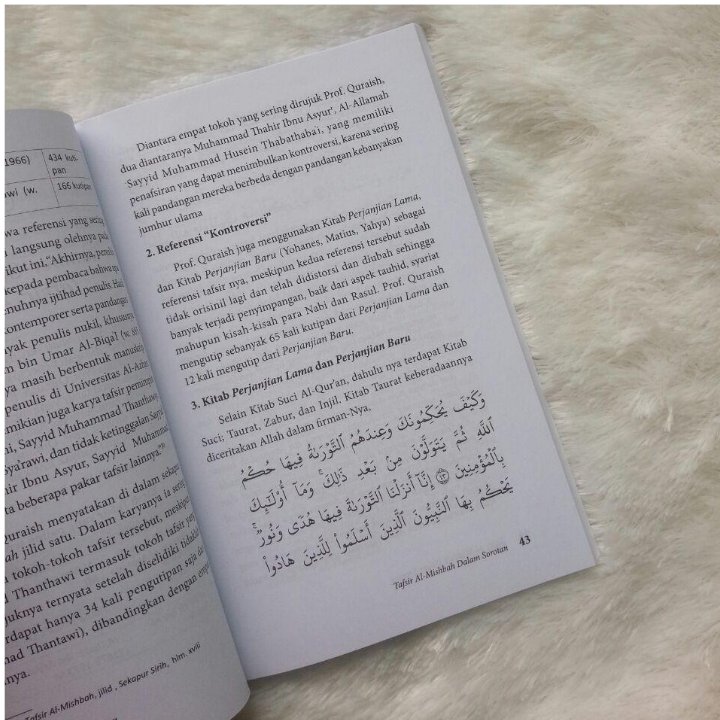 1966)
434 kuti
pan
wi (w.
166 kutipan
wa referensi yang sering
langsung olehnya pada
ikut ini."Akhirnya, penulis
kepada pembaca bahwa apa
nuhnya ijtihad penulis. Hasil
kontemporer serta pandangan
yak penulis nukil, khususnya
m bin Umar Al-Biqa'i (w.
ya masih berbentuk manuskrip
penulis di Universitas Al-Azhar
mikian juga karya tafsir pemimpin
ni, Sayyid Muhammad Thanthawi,
ya'rawi, dan tidak ketinggalan Sayyid
hir Ibnu Asyur, Sayyid Muhammad
ta beberapa pakar tafsir lainnya."
uraish menyatakan di dalam sekapur
ah jilid satu. Dalam karyanya ia sering
tokoh-tokoh tafsir tersebut, meskipun
Thanthawi termasuk tokoh tafsir yang
juknya ternyata setelah diselidiki tidaklah
rdapat hanya 34 kali pengutipan saja dari
ad Thantawi), dibandingkan dengan empat
nya.
Tafsir Al-Mishbah, jilid , Sekapur Sirih, hlm. xviii
Diantara empat tokoh yang sering dirujuk Prof. Quraish,
dua diantaranya Muhammad Thahir Ibnu Asyur', Al-Allamah
Sayyid Muhammad Husein Thabathaba'i, yang memiliki
penafsiran yang dapat menimbulkan kontroversi, karena sering
kali pandangan mereka berbeda dengan pandangan kebanyakan
jumhur ulama
2. Referensi "Kontroversi"
Prof. Quraish juga menggunakan Kitab Perjanjian Lama,
dan Kitab Perjanjian Baru (Yohanes, Matius, Yahya) sebagai
referensi tafsir nya, meskipun kedua referensi tersebut sudah
tidak orisinil lagi dan telah didistorsi dan diubah sehingga
banyak terjadi penyimpangan, baik dari aspek tauhid, syariat
mahupun kisah-kisah para Nabi dan Rasul. Prof. Quraish
mengutip sebanyak 65 kali kutipan dari Perjanjian Lama dan
12 kali mengutip dari Perjanjian Baru.
3. Kitab Perjanjian Lama dan Perjanjian Baru
Selain Kitab Suci Al-Qur'an, dahulu nya terdapat Kitab
Suci; Taurat, Zabur, dan Injil. Kitab Taurat keberadaannya
diceritakan Allah dalam firman-Nya,
وَكَيْفَ يُحَكِّمُونَكَ وَعِندَهُمُ ٱلتَّوْرَىٰةُ فِيهَا حُكْمُ
ٱللَّهِ ثُمَّ يَتَوَلَّوْنَ مِنۢ بَعْدِ ذَٰلِكَ ۚ وَمَآ أُو۟لَٰٓئِكَ
بِٱلْمُؤْمِنِينَ ﴿٤٣﴾ إِنَّآ أَنزَلْنَا ٱلتَّوْرَىٰةَ فِيهَا هُدًى وَنُورٌ ۚ
يَحْكُمُ بِهَا ٱلنَّبِيُّونَ ٱلَّذِينَ أَسْلَمُوا۟ لِلَّذِينَ هَادُوا۟
Tafsir Al-Mishbah Dalam Sorotan 43